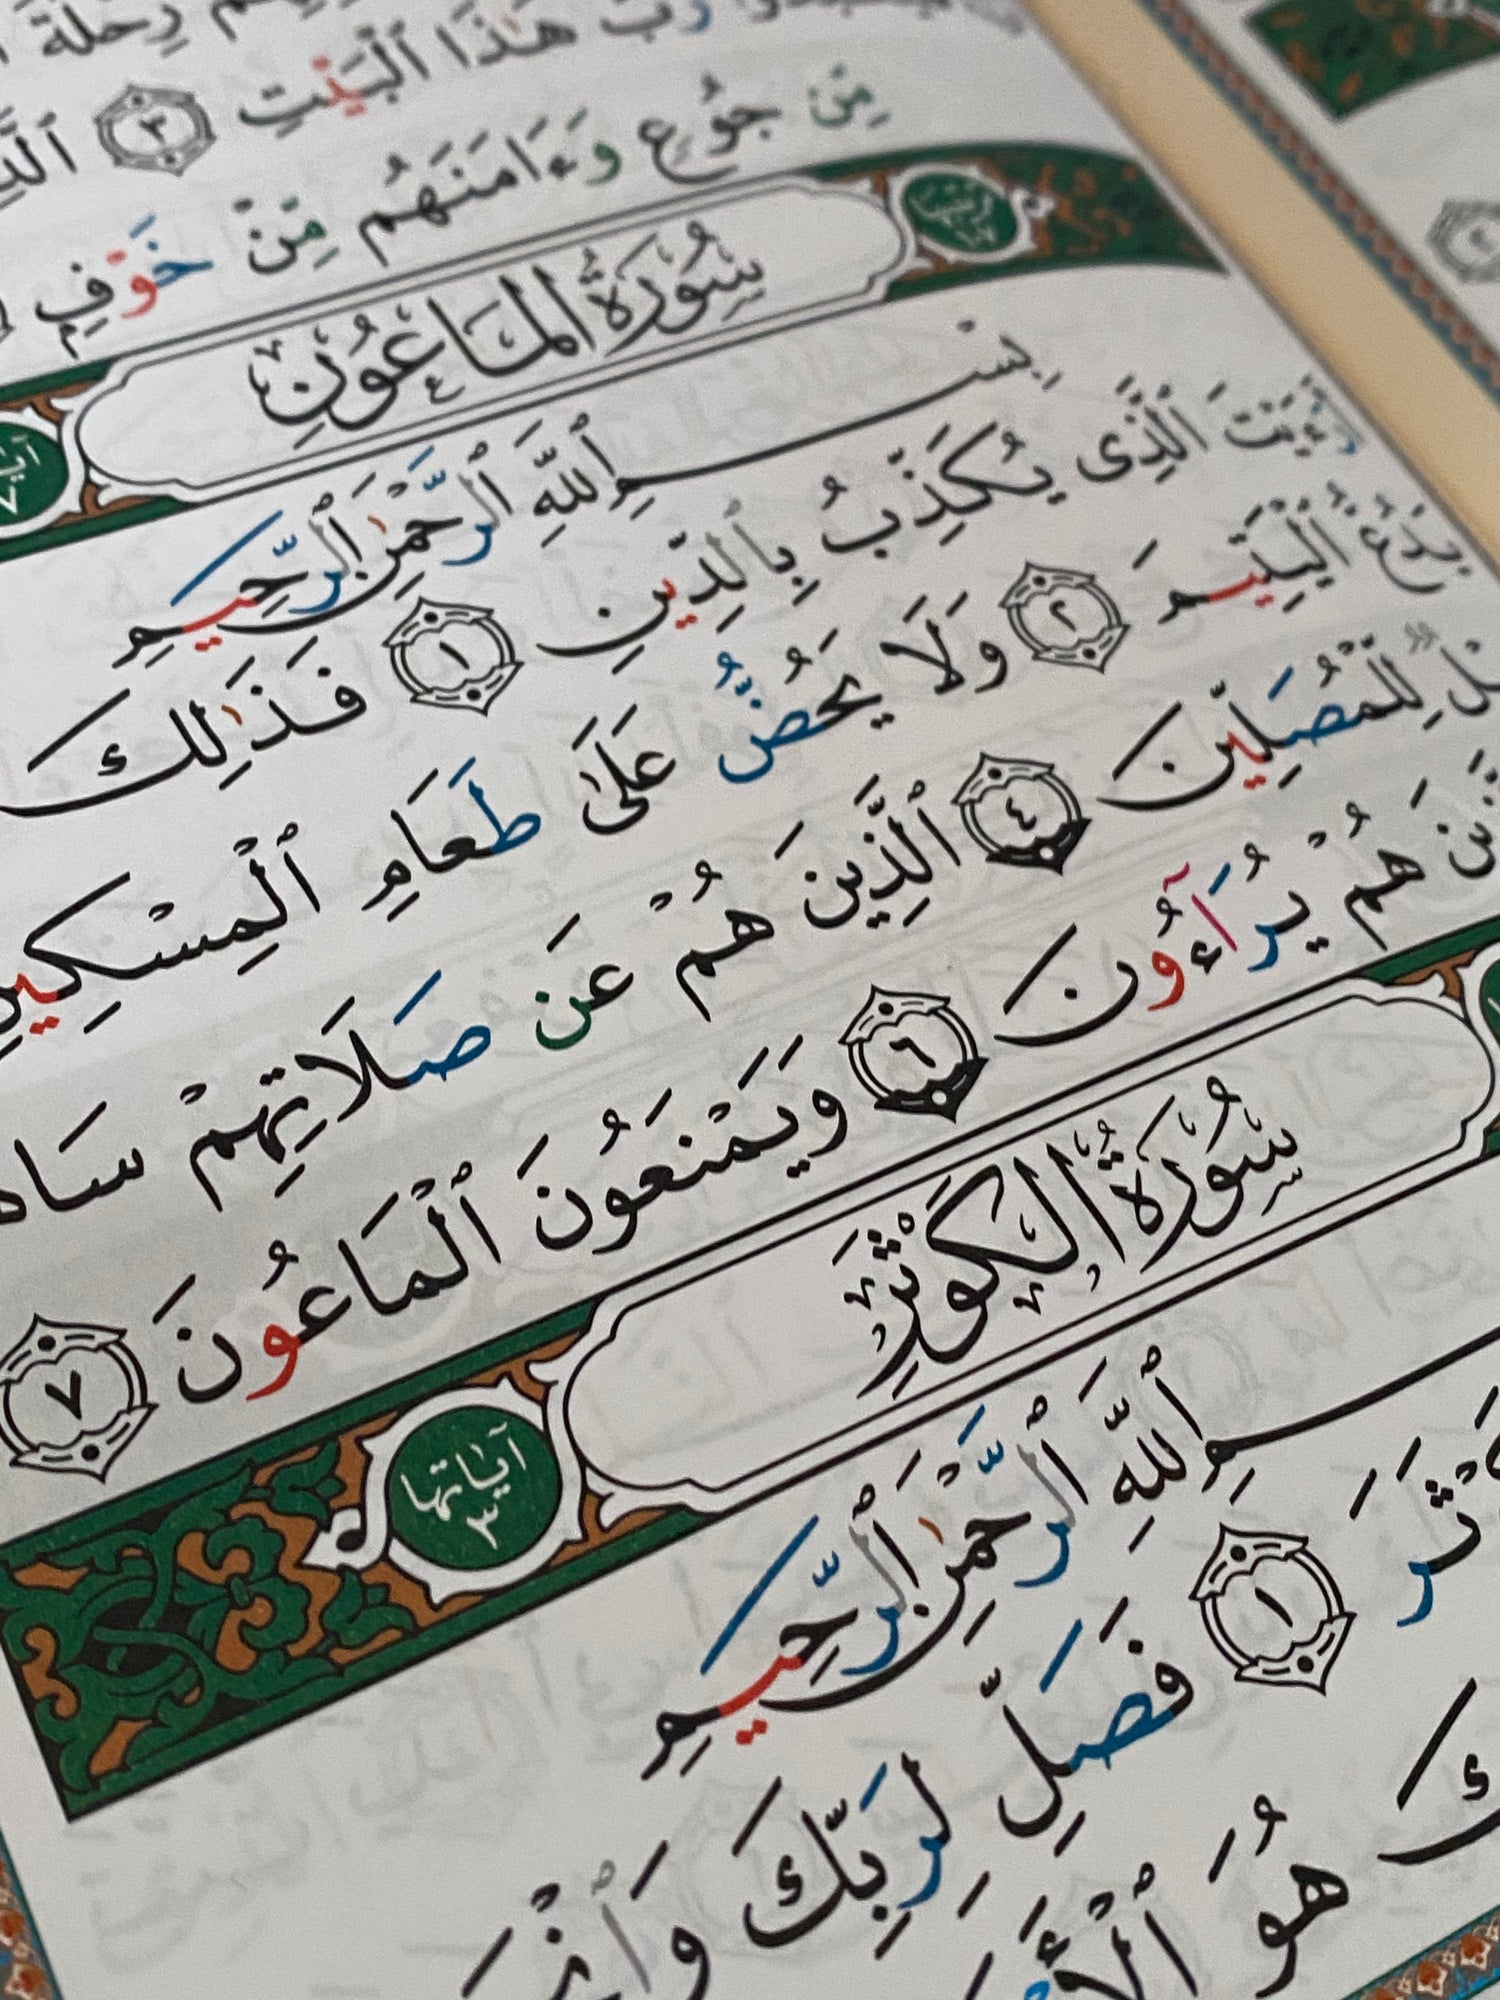 رَبَّ هَٰذَا ٱلْبَيْتِ ٣
مِّن جُوعٍ وَءَامَنَهُم مِّنْ خَوْفٍ
سُورَةُ المَاعُونِ
بِسْمِ ٱللَّهِ ٱلرَّحْمَٰنِ ٱلرَّحِيمِ
ٱلَّذِى يُكَذِّبُ بِٱلدِّينِ ١ فَذَٰلِكَ
ٱلْيَتِيمَ ٢ وَلَا يَحُضُّ عَلَىٰ طَعَامِ ٱلْمِسْكِينِ
لِّلْمُصَلِّينَ ٤ ٱلَّذِينَ هُمْ عَن صَلَاتِهِمْ
هُمْ يُرَآءُونَ ٦ وَيَمْنَعُونَ ٱلْمَاعُونَ ٧
سُورَةُ الكَوْثَرِ
آياتها
٣
بِسْمِ ٱللَّهِ ٱلرَّحْمَٰنِ ٱلرَّحِيمِ
١ فَصَلِّ لِرَبِّكَ
هُوَ